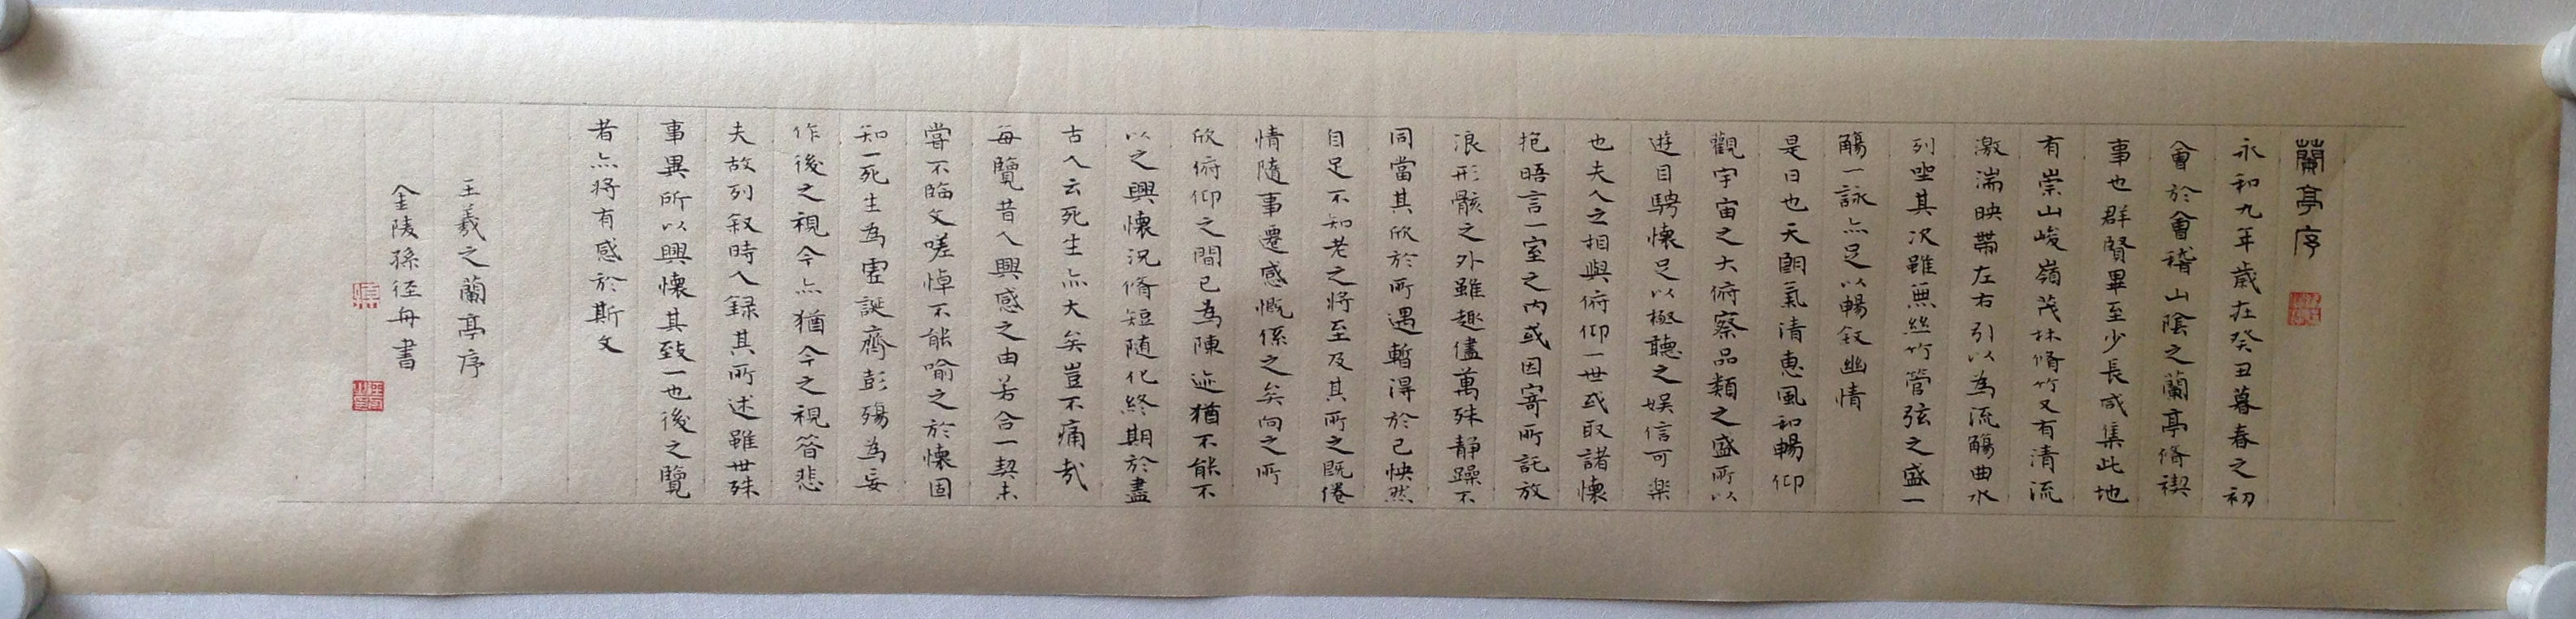 蘭亭序
永和九年歲在癸丑暮春之初
會於會稽山陰之蘭亭脩禊
事也群賢畢至少長咸集此地
有崇山峻嶺茂林脩竹又有清流
激湍映帶左右引以為流觴曲水
列坐其次雖無絲竹管弦之盛一
觴一詠亦足以暢叙幽情
是日也天朗氣清惠風和暢仰
觀宇宙之大俯察品類之盛所以
遊目騁懷足以極聽之娛信可樂
也夫人之相與俯仰一世或取諸懷
抱晤言一室之內或因寄所託放
浪形骸之外雖趣儘萬殊靜躁不
同當其欣於所遇暫得於己怏然
自足不知老之將至及其所之既倦
情隨事遷感慨係之矣向之所
欣俯仰之間已為陳迹猶不能不
以之興懷況脩短隨化終期於盡
古人云死生亦大矣豈不痛哉
每覽昔人興感之由若合一契未
嘗不臨文嗟悼不能喻之於懷固
知一死生為虛誕齊彭殤為妄
作後之視今亦猶今之視昔悲
夫故列叙時人録其所述雖世殊
事異所以興懷其致一也後之覽
者亦將有感於斯文
王羲之蘭亭序
金陵孫徑舟書